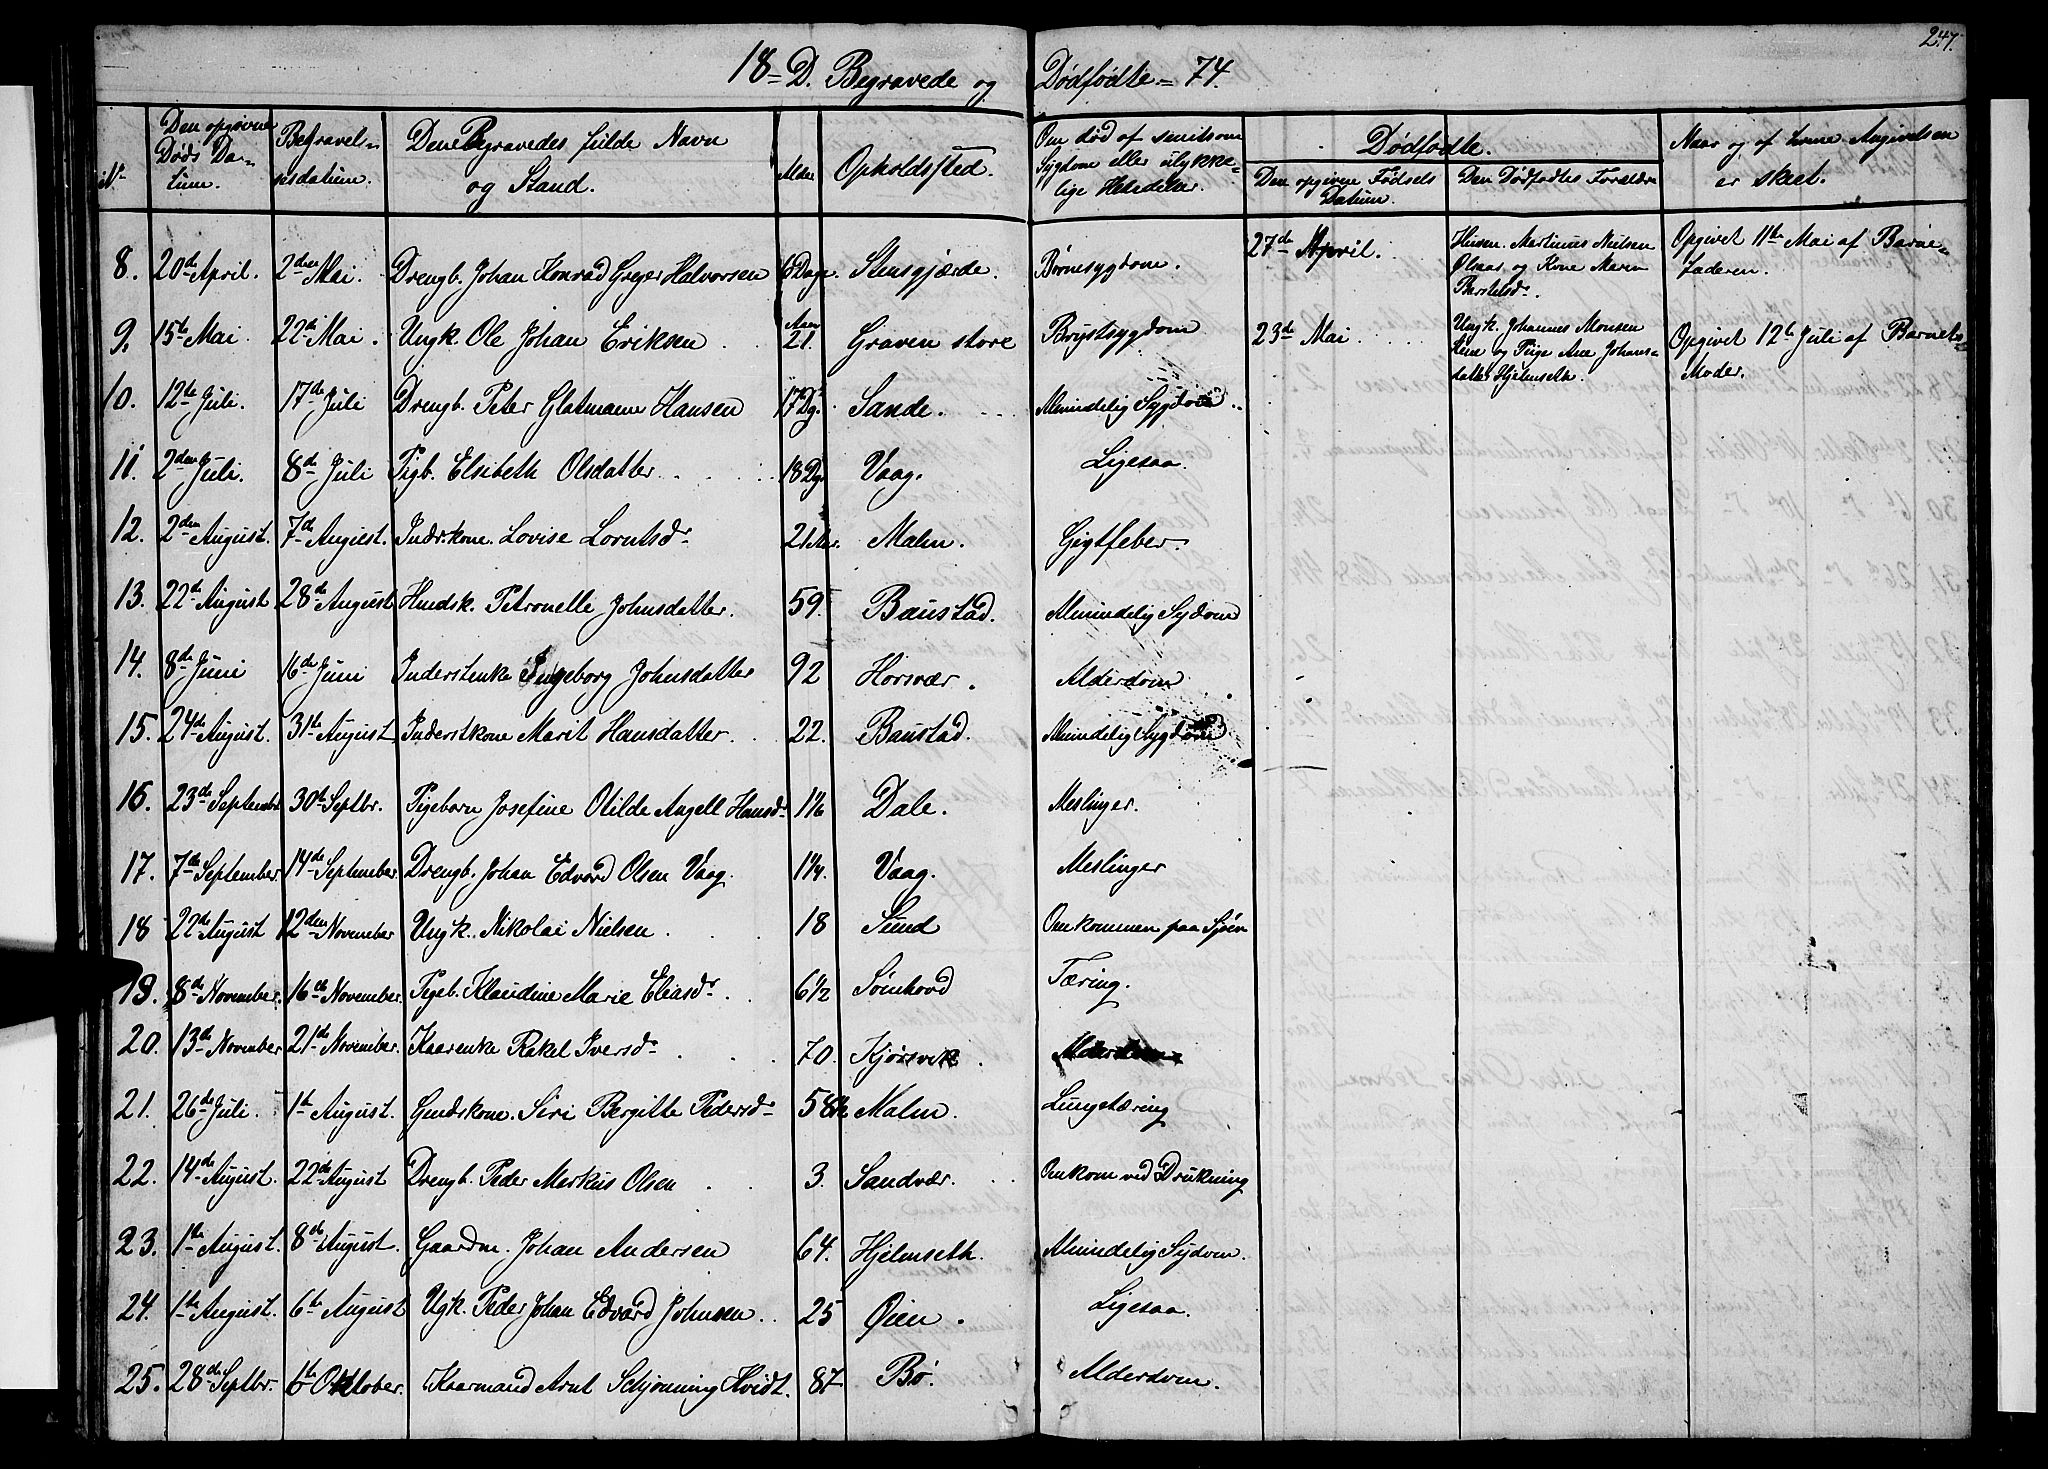 247.
18 = D. Begravede og Dødfødte = 74.
No
Den opgivne Døds Da- tum.
Begravel- sesdatum.
Den Begravedes fulde Navn og Stand.
Alder
Opholdssted.
Om død af smitsom Sygdom eller ulykke- lige Hændelser.
Dødfødte.
Den opgivne Fødsels Datum.
Den Dødfødtes Forældre
Naar og af hvem Angivelsen er skeet.
8. 20de April. 2den Mai. Drengb. Johan Konrad Greger Halvorsen Dage. Stensgjærde. Børnesygdom. 27de April. Husm. Martinus Nielsen Ølsaas og Kone Maren Bersteld. Opgivet 11te Mai af Barne- faderen.
9. 15te Mai 22de Mai. Ungk. Ole Johan Eriksen Aar 21. Graven store Brystsygdom 23de Mai Ungk. Johannes Monsen og Pige Ane Johans- datter Hjelmseth. Opgivet 12te Juli af Barnets Moder.
10. 12te Juli. 17de Juli Drengb. Peter Glatmann Hansen 17 Dg. Sande. Almindelig Sygdom
11. 2den Juli. 8de Juli Pigb. Elsibeth Olsdatter 18 Dg. Vaag. Ligesaa.
12. 2den August. 7de August. Indr.kone. Lovise Lorntsdr 21 Aar. Malm. Gigtfeber.
13. 22de August 28de August Husdsk. Petronelle Johnsdatter. 59. Baustad. Almindelig Sydom
14. 8de Juni 16de Juni Inderstenke Ingeborg Johnsdatter 92 Horsvær. Alderdom
15. 24de August. 31te August. Inderstkone Marit Hansdatter. 22. Baustad. Almindelig Sygdom
16. 23de September 30te Septbr. Pigebarn Josefine Otilde Angell Hansdr 1 1/6 Dale. Meslinger.
17. 7de September. 14de September. Drengb. Johan Edvard Olsen Vaag. 1 1/4. Vaag. Meslinger
18 22de August 12den November Ungk. Nikolai Nielsen 18 Sund Omkommen paa Sjøen
19. 8de November. 16de November. Pigeb. Klaudine Marie Eliasdr 6 1/2 Sørnhovd Tæring.
20. 13de November 21de November. Kaarenke Rakel Iversdr 70. Kjørsvik Alderdom
21. 26de Juli. 1te August. Gaardskone. Siri Bergitte Pedersdr 58 Malm. Lungetæring
22. 14de August. 22de August Drengb. Peder Markus Olsen 3. Sandvær. Omkom ved Drukning
23. 1te August. 8de August. Gaardm. Johan Andersen 64. Hjelmseth. Almindelig Sydom.
24. 1te August. 6te August Ugk. Peder Johan Edvard Johnsen 25 Øien. Ligesaa.
25. 28de Septbr. 6te Oktober. Kaarmand Arnt Schjønning Hvidt. 87 Bø. Alderdom.